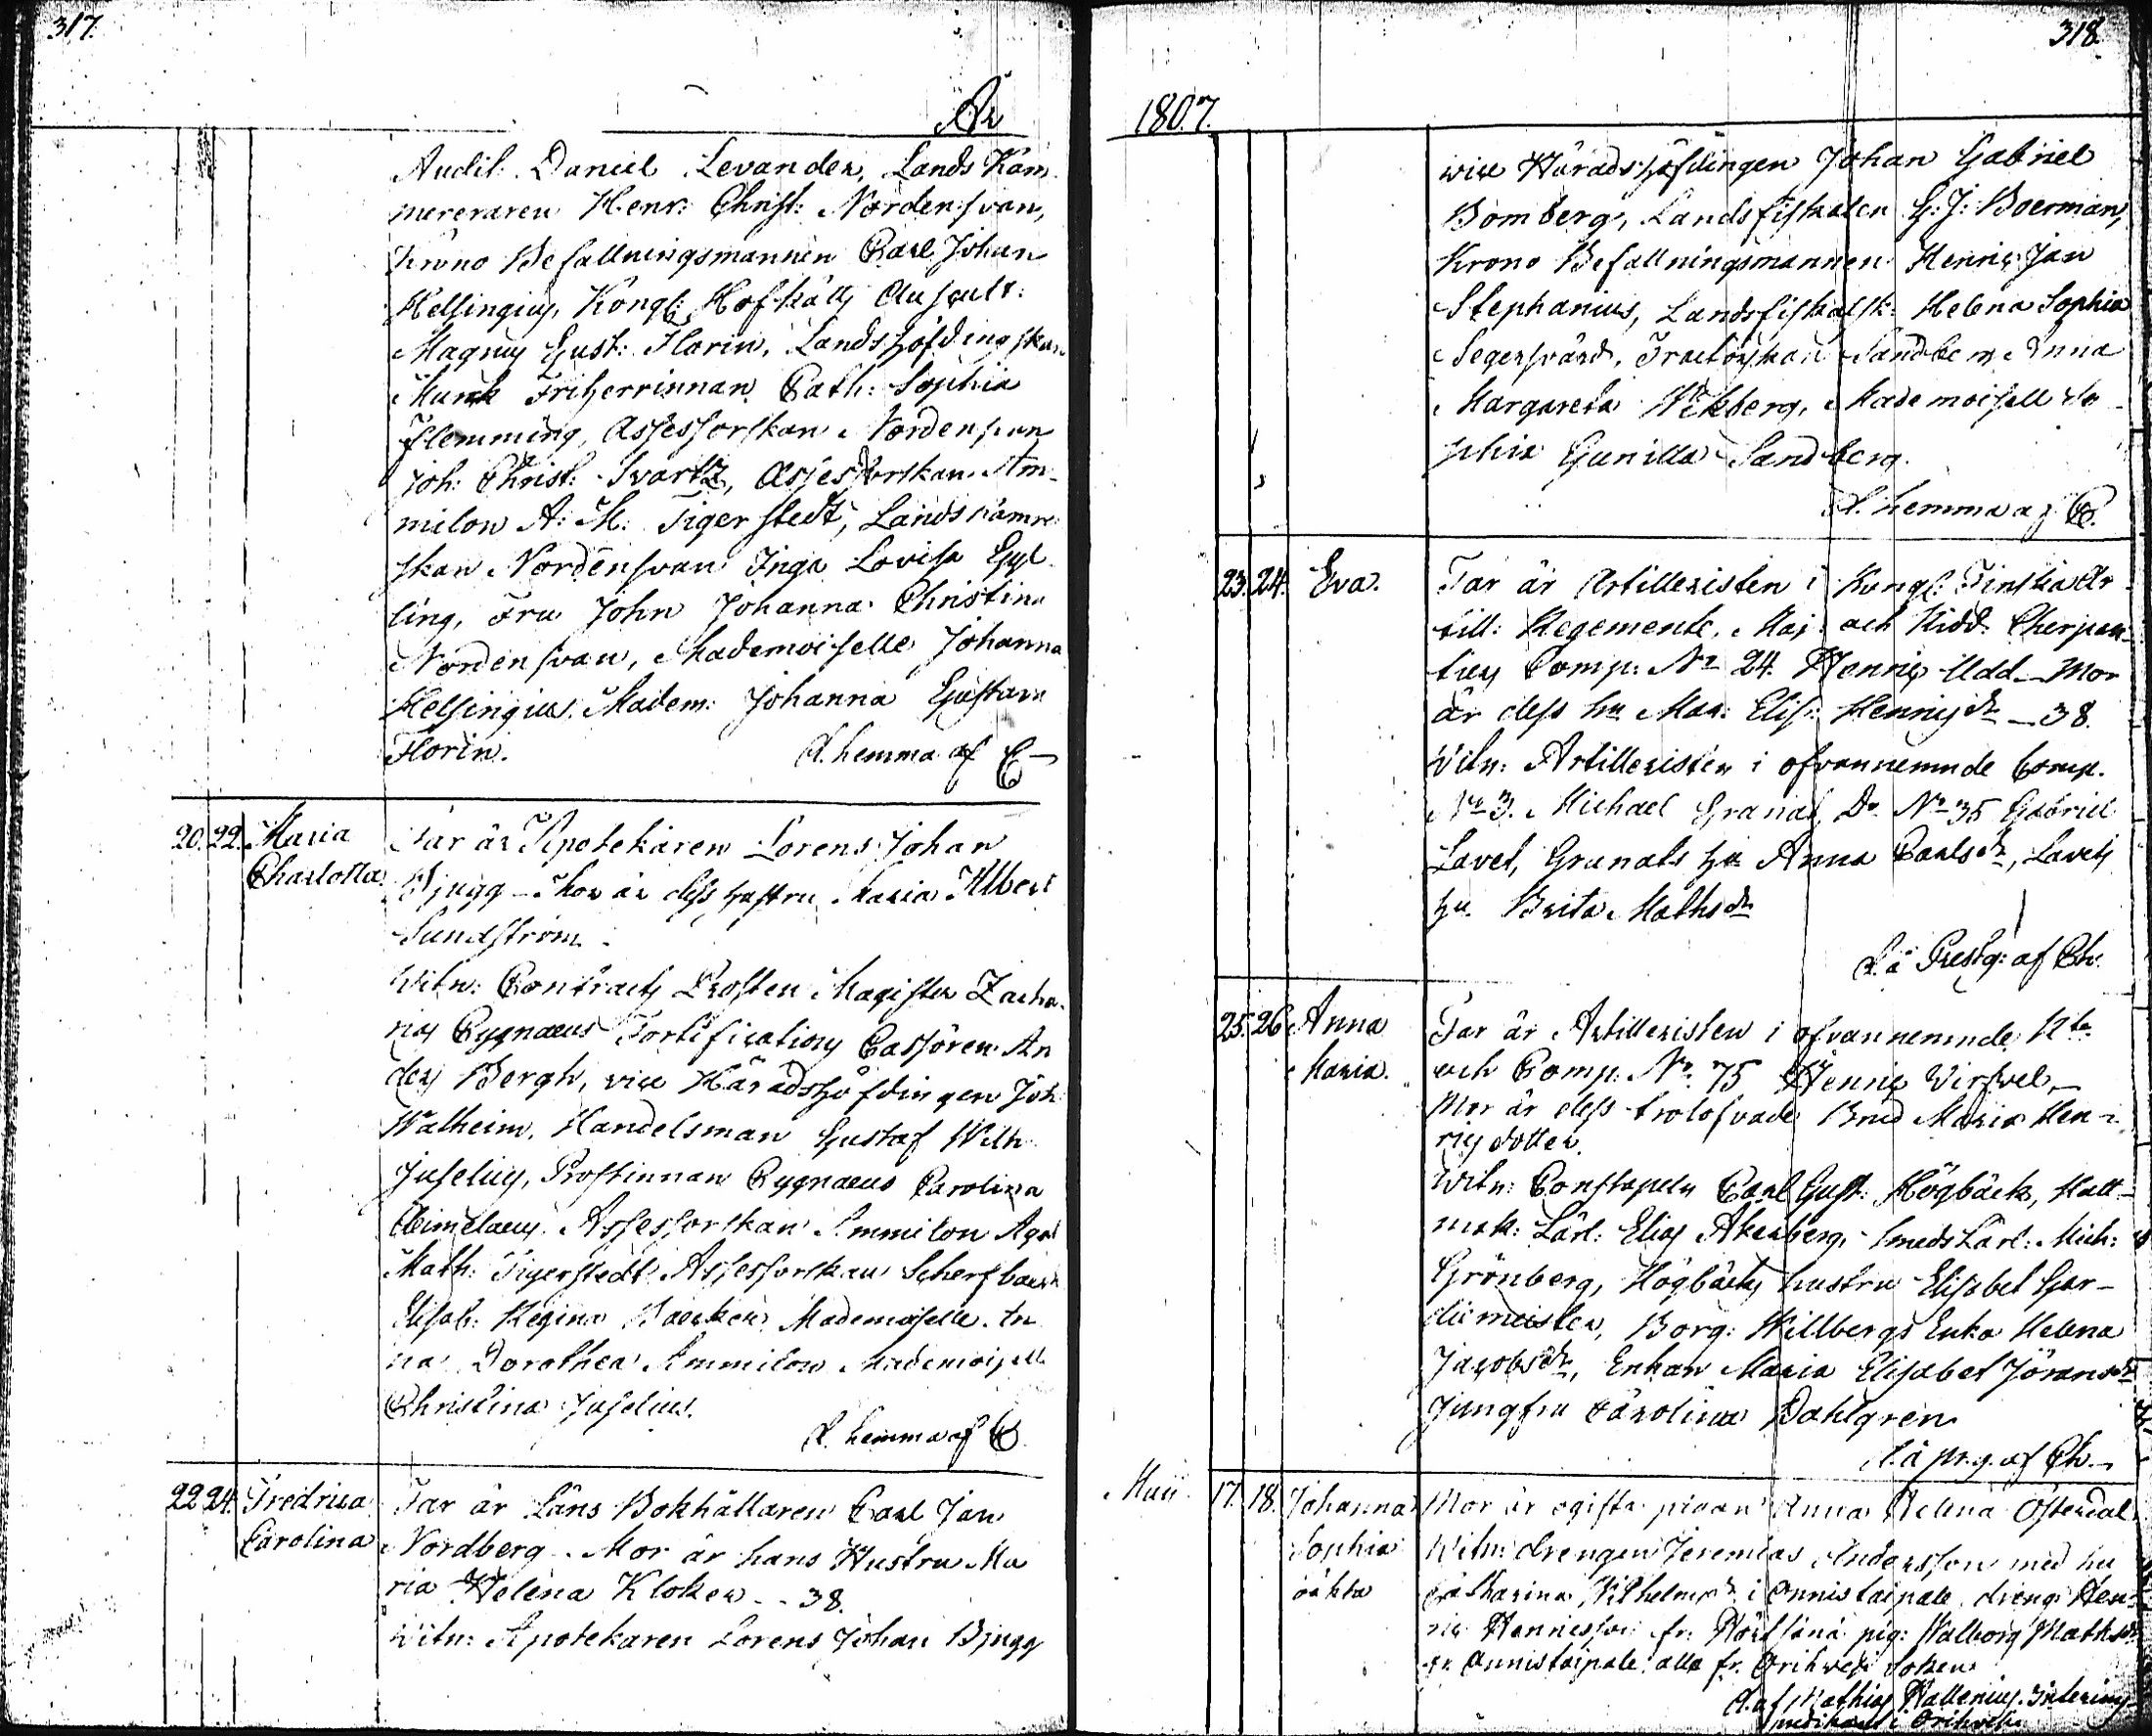 317.
År
Audit: Daniel Levander, Lands Kam
mereraren Henr: Christ: Nordensvan,
Krono Befallningsmannen Carl Johan
Helsingius, Kongl: Hofrätts Auscult:
Magnus Gust: Florin, Landshöfdingskan
Munk Friherrinnan Cath: Sophia
Flemming, Assessorskan Nordensvan
Joh: Christ: Svartz, Assessorskan Am-
milon A: M: Tigerstedt, Landskamre
skan Nordensvan Inga Lovisa Gyl
ling, Fru John Johanna Christina
Nordensvan, Mademoiselle Johanna
Helsingius, Madem: Johanna Gustava
Florin. D. hemma af C
20. 22. Maria Far är Apotekaren Lorens Johan
Charlotta Bjugg - Mor är dess hustru Maria Albert
Sundström.
Witn: Contracts Prosten Magister Zacha
rias Cygnaeus Fortifications Cassören An
ders Bergh, vice Häradshöfdingen Joh:
Walheim, Handelsman Gustaf Wilh
Juselius, Prostinnan Cygnaeus Carolina
Aimelaeus, Assessorskan Ammilon Agat
Math: Tigerstedt, Assessorskan
Elisab: Regina Mademoiselle An
na Dorothea Ammilon Mademoiselle
Christina Juselius.
D. hemma af C.
22 24. Fredrica Far är Läns Bokhållaren Carl Jan
Carolina Nordberg - Mor är hans Hustru Ma
ria Helena Klöker - - 38.
Witn: Apotekaren Lorens Johan Bjugg
318.
1807.
vice Häradshöfdingen Johan Gabriel
Bomberg, Landsfiskalen G: J: Boerman,
Krono Befallningsmannen Henric Jan
Stephanius, Landsfiskalsk: Helena Sophia
Segersvärd, Tractörskan Sandberg Anna
Margareta Wikberg, Mademoisell So
phia Gunilla Sandberg.
D. hemma af C.
23. 24. Eva. Far är Artilleristen i Kongl: Finska Ar
till: Regemente, Maj: och Ridd: Cherpen
tiers Comp: No 24. Henric Udd - Mor
är dess hu Mar: Elis: Henricsdr - 38.
Witn: Artilleristen i ofvannemnde Comp.
No 3. Michael Granat, Do No 35 Gabriel
Lavet, Granats hu Anna Carlsdr, Lavets
hu Brita Mathsdr
D. å Prestg: af Ch.
25. 26 Anna Far är Artilleristen i ofvannemnde Rte
Maria. och Comp: No 75 Henric Virvel,
Mor är dess trolofvade Brud Maria Hen-
rics dotter.
Witn: Constapeln Carl Gust: Högbäck, Hatt-
mak: Lärl: Elias Åkerberg, Smeds Lärl: Mich:
Grönberg, Högbäcks hustru Elisabet Gar-
diemeister, Borg: Willbergs Enka Helena
Jacobsdr, Enkan Maria Elisabet Göransdr
Jungfru Carolina Dahlgren
D. å pr.g. af Ch.
Maij 17. 18. Johanna Mor är ogifta pigan Anna Helena Österdal
Sophia Witn: drengen Jeremias Andersson med hu
oäkta Catharina Wilhelmsdr i Onnistaipale, dreng: Hen-
ric Henricsson fr. pig: Walborg Mathsdr
fr. Onnistaipale, alla fr. Orihvesi Soken
D. af Mathias Wallenius, Interims
predikant i Orihvesi